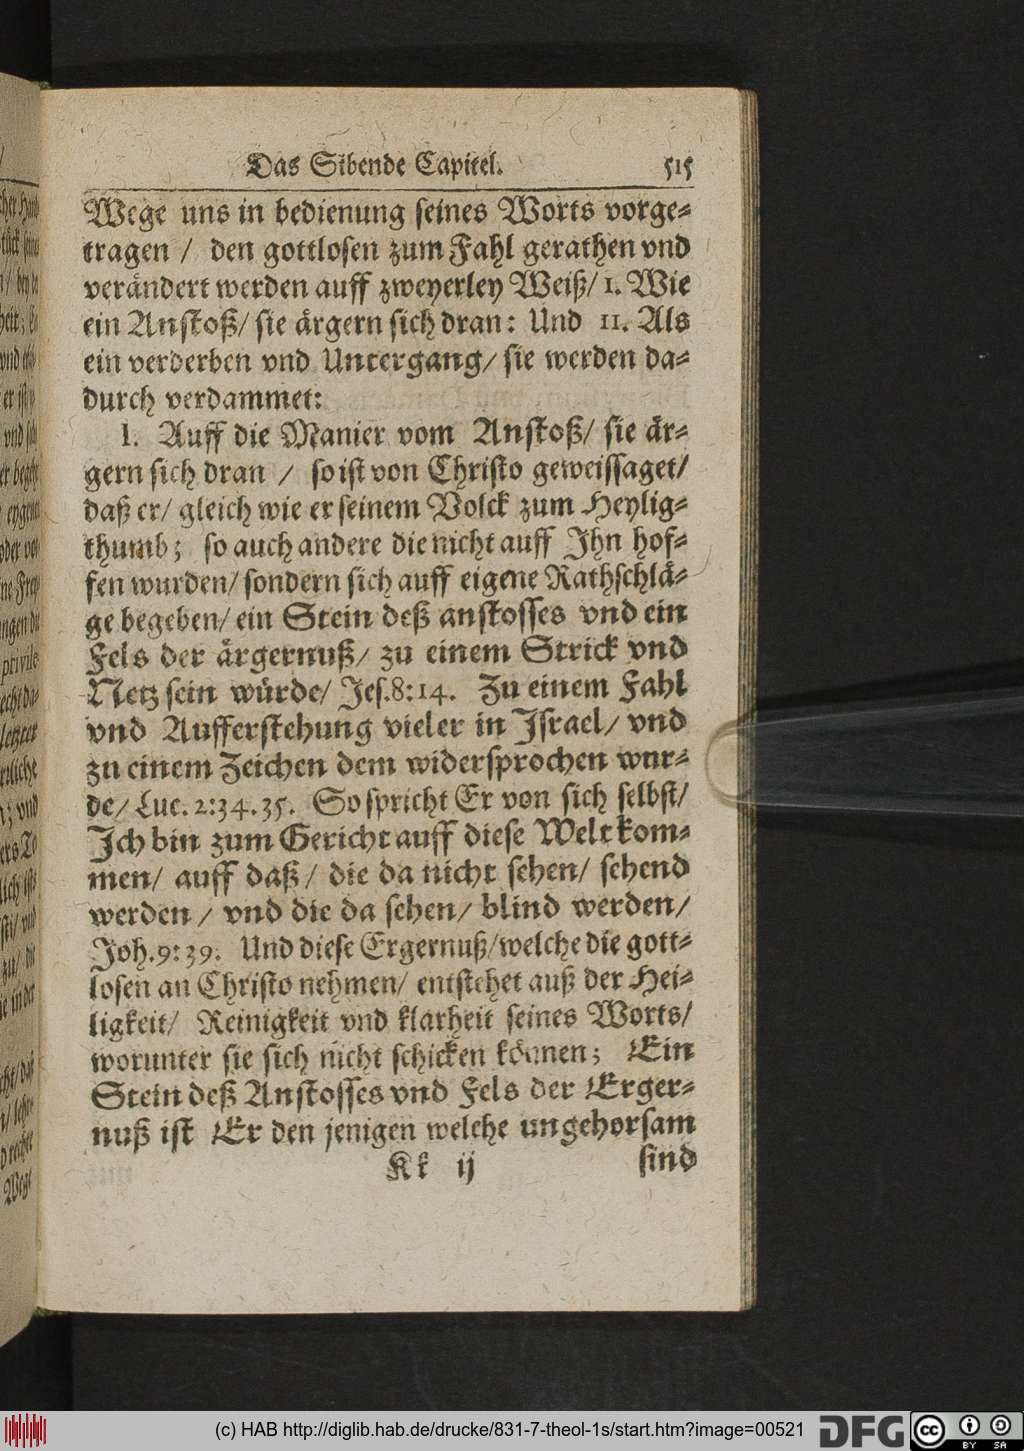 Das Sibende Capitel. 515
Wege uns in bedienung seines Worts vorge-
tragen / den gottlosen zum Fahl gerathen vnd
verändert werden auff zweyerley Weiß/ 1. Wie
ein Anstoß/ sie ärgern sich dran: Und 11. Als
ein verderben vnd Untergang/ sie werden da-
durch verdammet:
1. Auff die Manier vom Anstoß/ sie är-
gern sich dran / so ist von Christo geweissaget/
daß er/ gleich wie er seinem Volck zum Heylig-
thumb; so auch andere die nicht auff Ihn hof-
fen wurden/ sondern sich auff eigene Rathschlä-
ge begeben/ ein Stein deß anstosses vnd ein
Fels der ärgernuß/ zu einem Strick vnd
Netz sein würde/ Jes.8:14. Zu einem Fahl
vnd Aufferstehung vieler in Israel/ vnd
zu einem Zeichen dem widersprochen wur-
de/ Luc. 2:34.35. So spricht Er von sich selbst/
Ich bin zum Gericht auff diese Welt kom-
men/ auff daß/ die da nicht sehen/ sehend
werden / vnd die da sehen/ blind werden/
Joh.9:39. Und diese Ergernuß/ welche die gott-
losen an Christo nehmen/ entstehet auß der Hei-
ligkeit/ Reinigkeit vnd klarheit seines Worts/
worunter sie sich nicht schicken können; Ein
Stein deß Anstosses vnd Fels der Erger-
nuß ist Er den jenigen welche ungehorsam
Kk ij sind
(c) HAB http://diglib.hab.de/drucke/831-7-theol-1s/start.htm?image=00521
DFG
cc BY SA